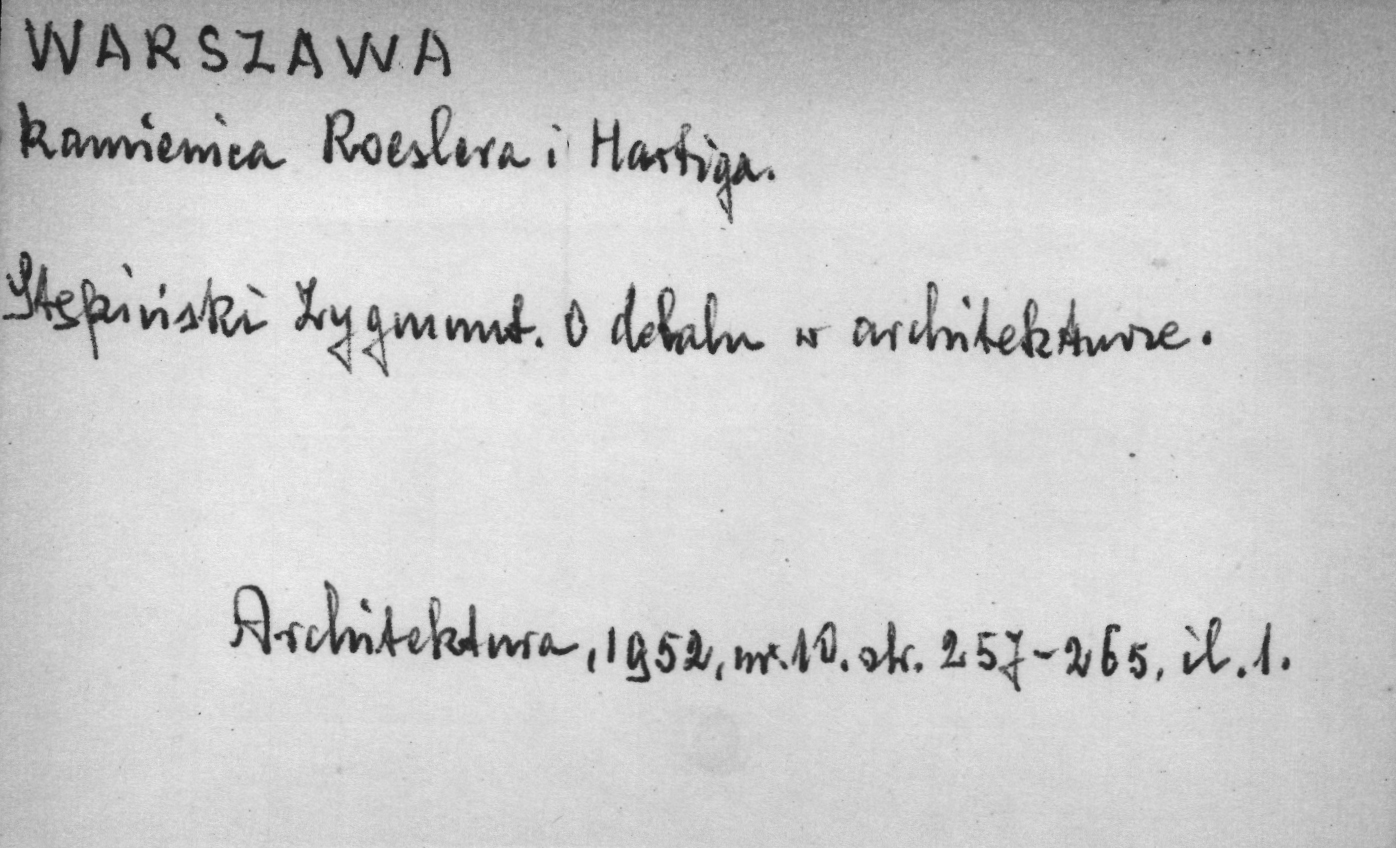 WARSZAWA
kamienica Roeslera i Hartiga.
Stępiński Zygmunt. O detalu w architekturze.
Architektura, 1952, nr. 10. str. 257-265, il. 1.